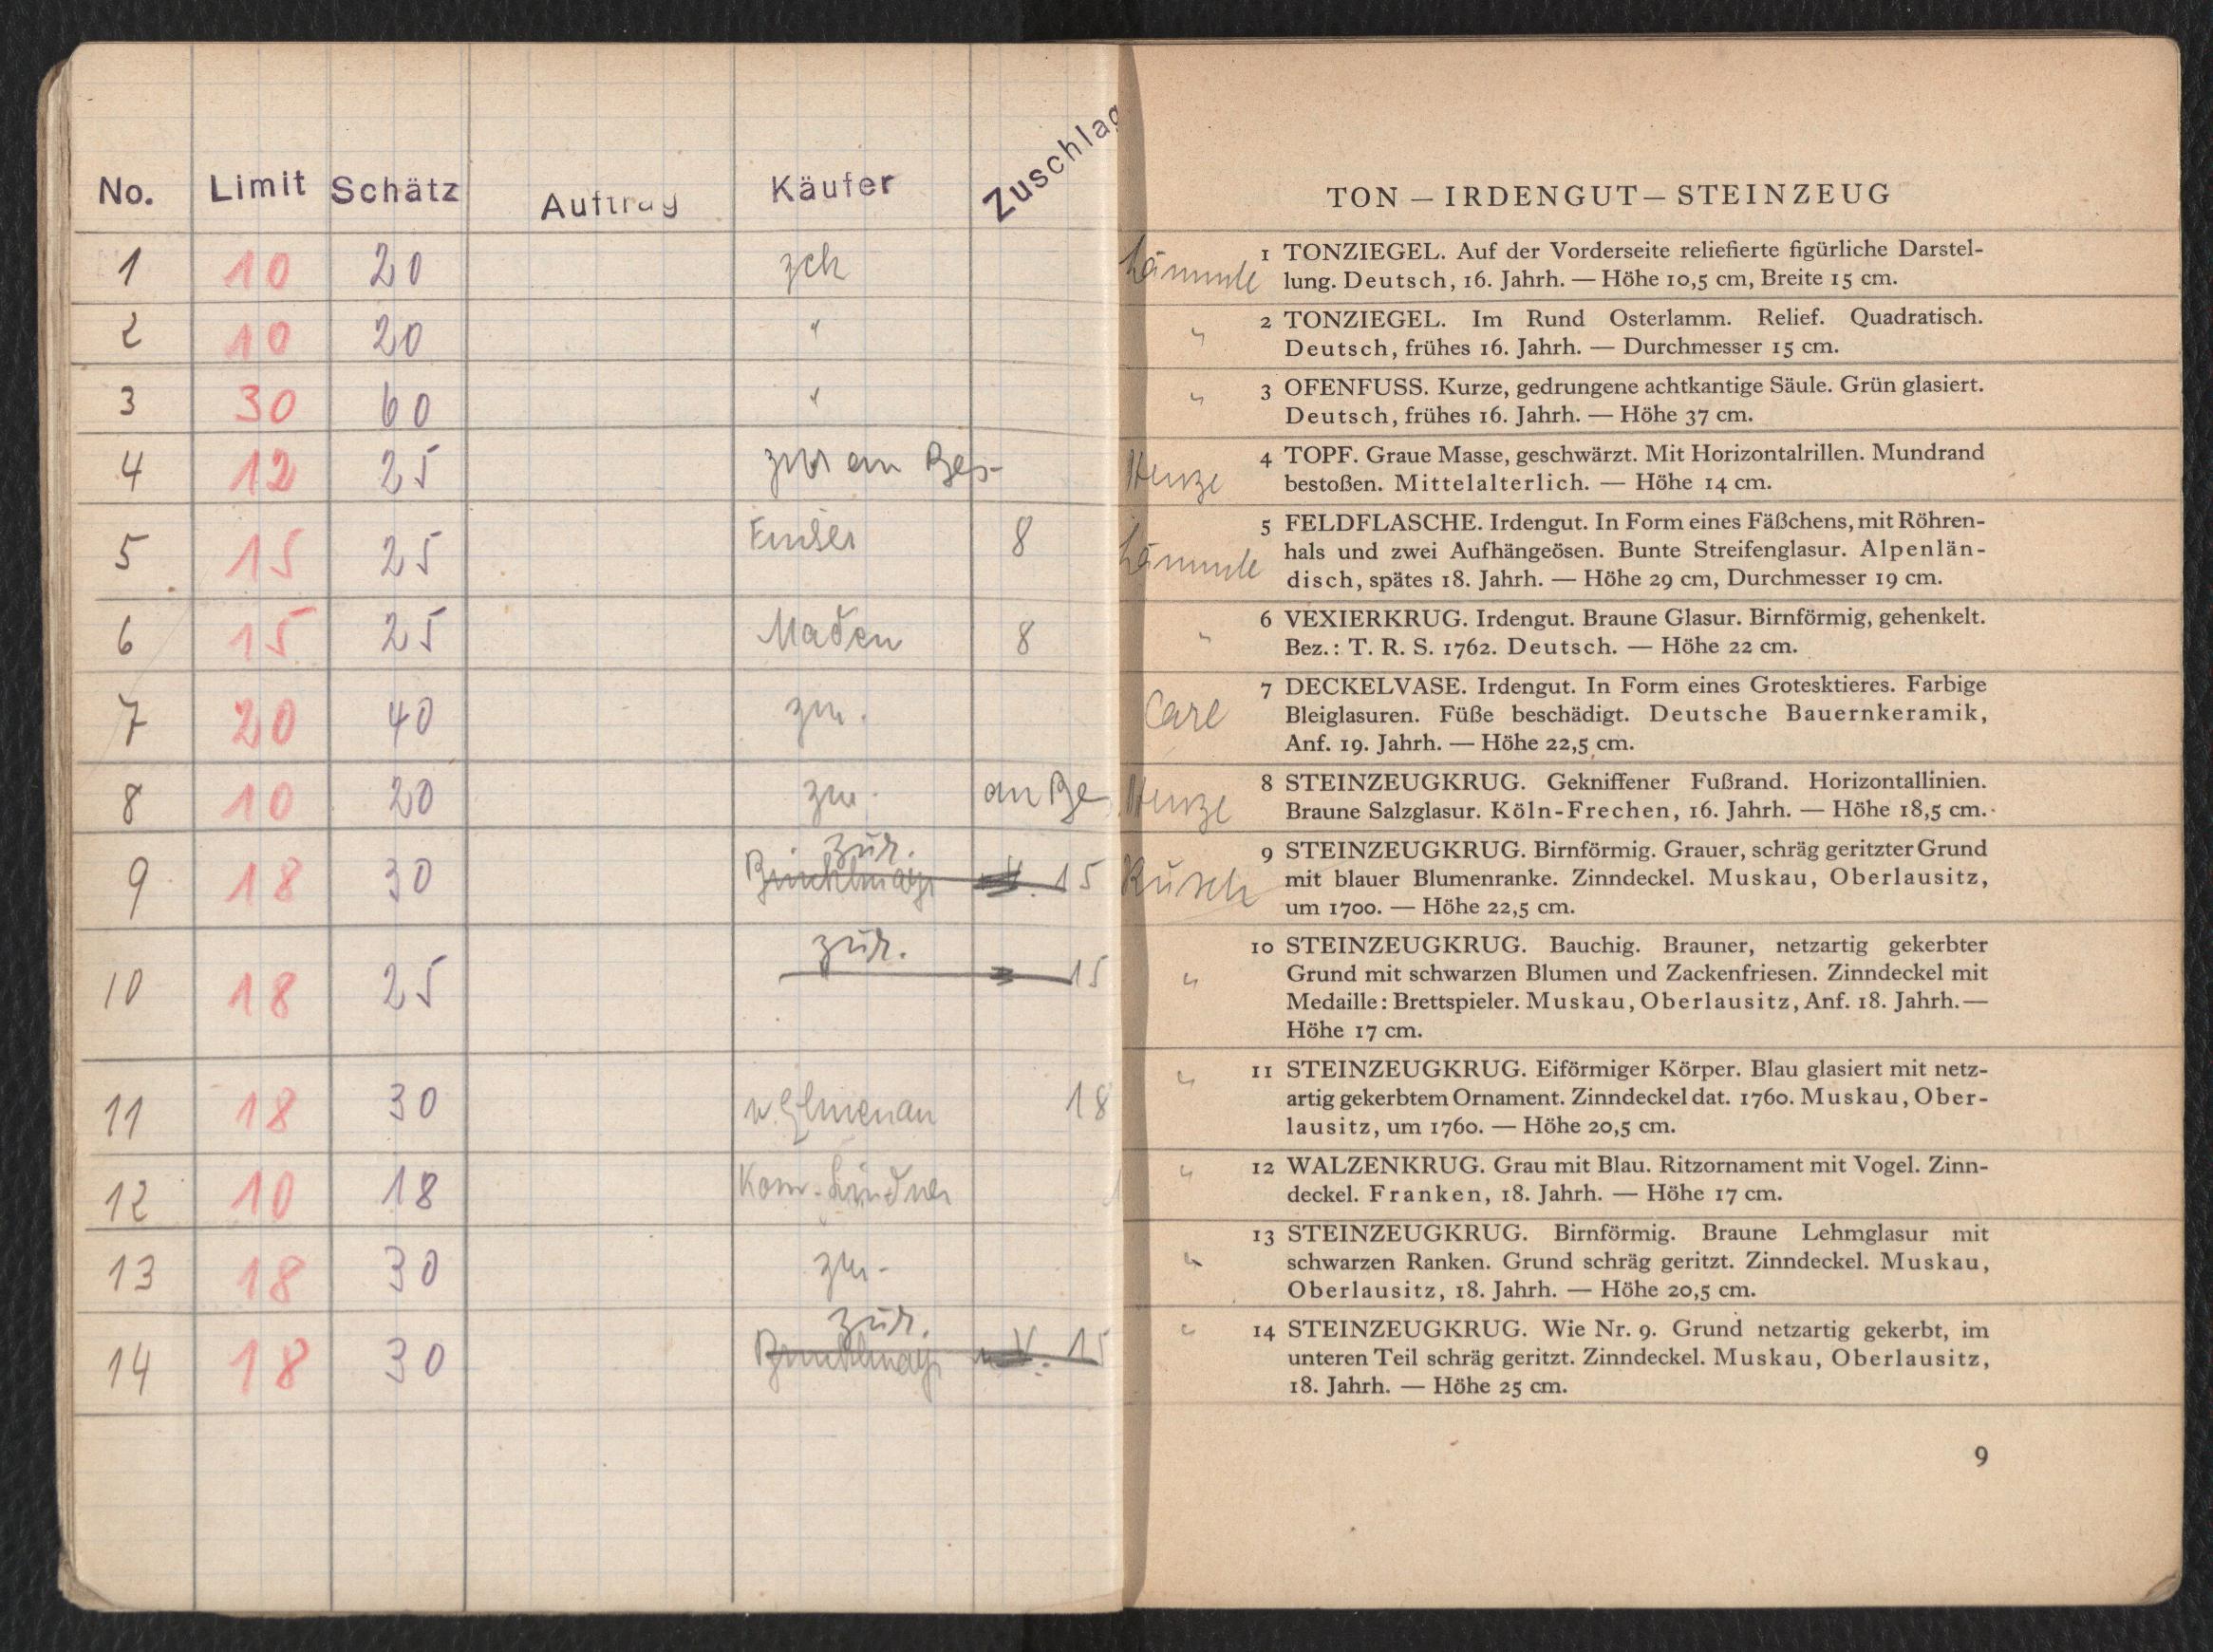 No. Limit Schätz Auftrag Käufer Zuschlag
1 10 20
2 10 20 "
3 30 60 "
4 12 25 zur an Bes-
5 15 25 8
6 15 25 Maden 8
7 20 40 zur.
8 10 20 zur. an Be
zür.
9 18 30 15
zür.
10 18 25 15
11 18 30 18
12 10 18 Kom. Lindner
13 18 30 zur-
zür.
14 18 30 15
TON – IRDENGUT – STEINZEUG
Lämmle 1 TONZIEGEL. Auf der Vorderseite reliefierte figürliche Darstel-
lung. Deutsch, 16. Jahrh. — Höhe 10,5 cm, Breite 15 cm.
" 2 TONZIEGEL. Im Rund Osterlamm. Relief. Quadratisch.
Deutsch, frühes 16. Jahrh. — Durchmesser 15 cm.
" 3 OFENFUSS. Kurze, gedrungene achtkantige Säule. Grün glasiert.
Deutsch, frühes 16. Jahrh. — Höhe 37 cm.
Henze 4 TOPF. Graue Masse, geschwärzt. Mit Horizontalrillen. Mundrand
bestoßen. Mittelalterlich. — Höhe 14 cm.
Lämmle 5 FELDFLASCHE. Irdengut. In Form eines Fäßchens, mit Röhren-
hals und zwei Aufhängeösen. Bunte Streifenglasur. Alpenlän-
disch, spätes 18. Jahrh. — Höhe 29 cm, Durchmesser 19 cm.
" 6 VEXIERKRUG. Irdengut. Braune Glasur. Birnförmig, gehenkelt.
Bez.: T. R. S. 1762. Deutsch. — Höhe 22 cm.
Carl 7 DECKELVASE. Irdengut. In Form eines Grotesktieres. Farbige
Bleiglasuren. Füße beschädigt. Deutsche Bauernkeramik,
Anf. 19. Jahrh. — Höhe 22,5 cm.
Henze 8 STEINZEUGKRUG. Gekniffener Fußrand. Horizontallinien.
Braune Salzglasur. Köln-Frechen, 16. Jahrh. — Höhe 18,5 cm.
Rusch 9 STEINZEUGKRUG. Birnförmig. Grauer, schräg geritzter Grund
mit blauer Blumenranke. Zinndeckel. Muskau, Oberlausitz,
um 1700. — Höhe 22,5 cm.
" 10 STEINZEUGKRUG. Bauchig. Brauner, netzartig gekerbter
Grund mit schwarzen Blumen und Zackenfriesen. Zinndeckel mit
Medaille: Brettspieler. Muskau, Oberlausitz, Anf. 18. Jahrh. —
Höhe 17 cm.
" 11 STEINZEUGKRUG. Eiförmiger Körper. Blau glasiert mit netz-
artig gekerbtem Ornament. Zinndeckel dat. 1760. Muskau, Ober-
lausitz, um 1760. — Höhe 20,5 cm.
" 12 WALZENKRUG. Grau mit Blau. Ritzornament mit Vogel. Zinn-
deckel. Franken, 18. Jahrh. — Höhe 17 cm.
" 13 STEINZEUGKRUG. Birnförmig. Braune Lehmglasur mit
schwarzen Ranken. Grund schräg geritzt. Zinndeckel. Muskau,
Oberlausitz, 18. Jahrh. — Höhe 20,5 cm.
" 14 STEINZEUGKRUG. Wie Nr. 9. Grund netzartig gekerbt, im
unteren Teil schräg geritzt. Zinndeckel. Muskau, Oberlausitz,
18. Jahrh. — Höhe 25 cm.
9